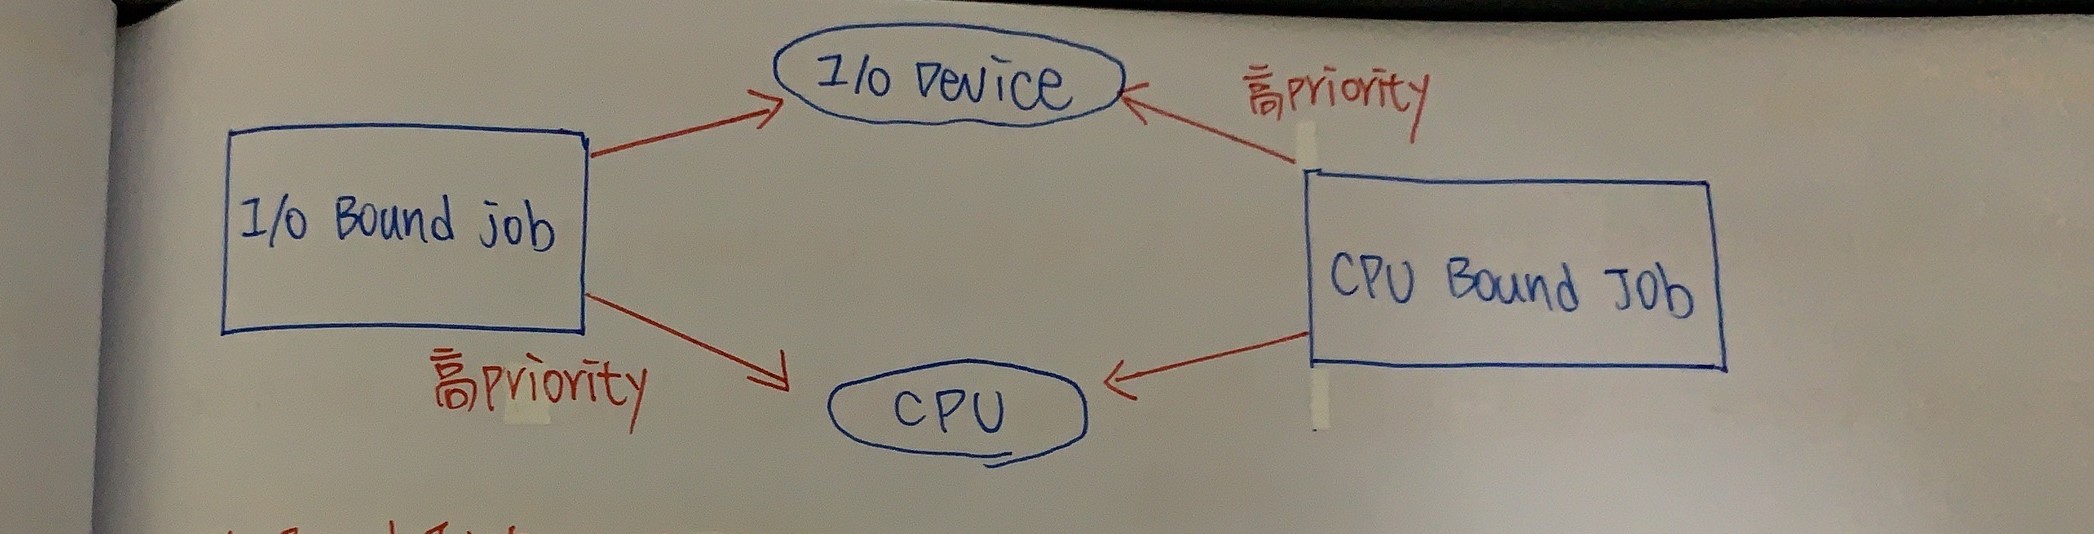 I/O Device
高priority
I/O Bound job
CPU Bound Job
高priority
CPU